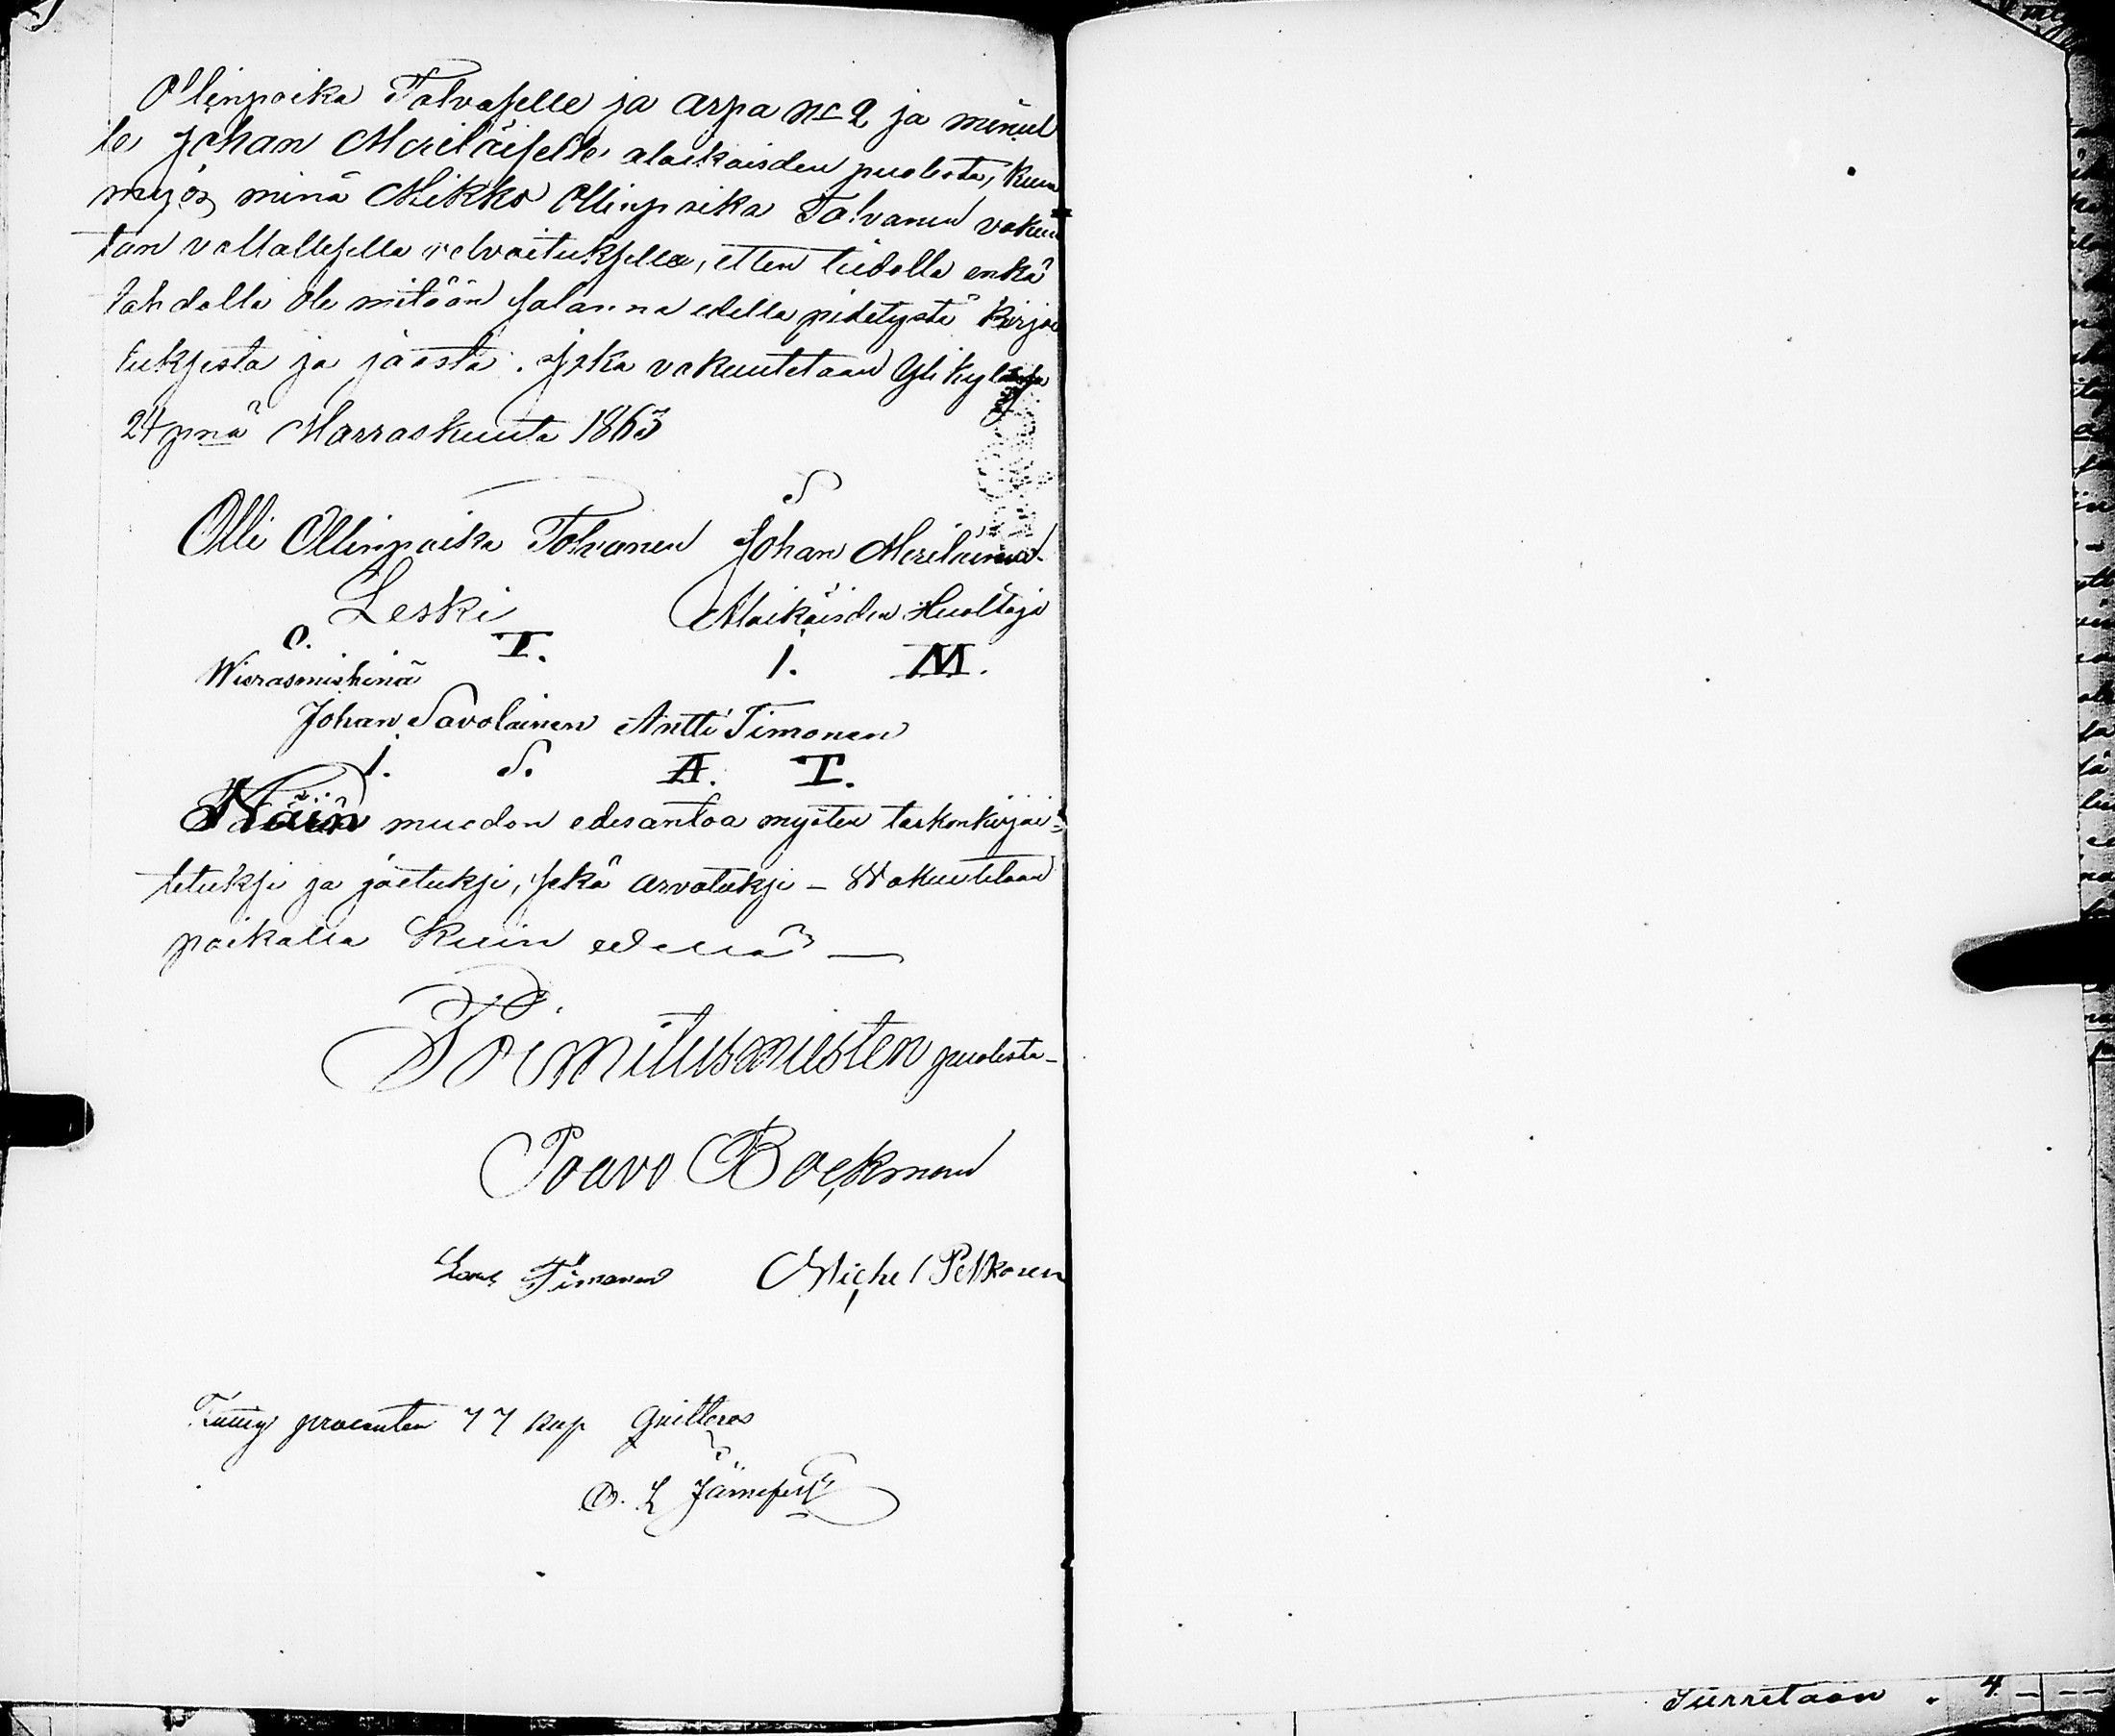 Ollinpoika Tolvaselle ja arpa No 2 ja minul
le Johan Meriläiselle alaikäisden puolesta, kuin
myös minä Mikko Ollinpoika Tolvanen vakuu
tan vallallisella velvoituksella, etten tiedolla enkä
tahdolla ole mitään salanna edellä pidetystä kirjoi
tuksesta ja jaosta. Joka vakuutetaan Ylikylässä
24 pnä Marraskuuta 1863
Olli Ollinpoika Tolvanen Johan Meriläinen
Leski Alaikäisden Huoltaja
O. T. I. M.
Wierasmiehinä
Johan Savolainen Antti Timonen
I. S. A. T.
Näin muodon edesantoa myöten tarkonkirjoi=
tetuksi ja jaetuksi, sekä arvatuksi – Wakuutetaan
paikalla kuin edellä —
Toimitusmiesten puolesta–
Paavo Boekman
Lars Timonen Michel Petkonen
procenten 77 kop quitteras
O. L. Järnefelt
Siirretään . 4 – --